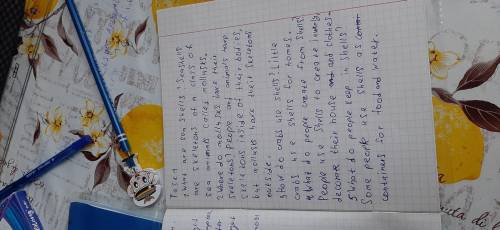 Task 1
1 what are sea shells? Seashells
are skeletons of a class of
sea animals called mollusks.
2 Where do mollusks have their
skeletons? People and animals have
skeletons inside of their bodies,
but mollusks have their skeletons
outside.
3 How do crabs use shells? Little
crabs use shells for homes.
4 What do people create from shells?
People use shells to create
decorate their house and clothes.
5 What do people keep in shells?
Some people use shells as
containers for food and water.